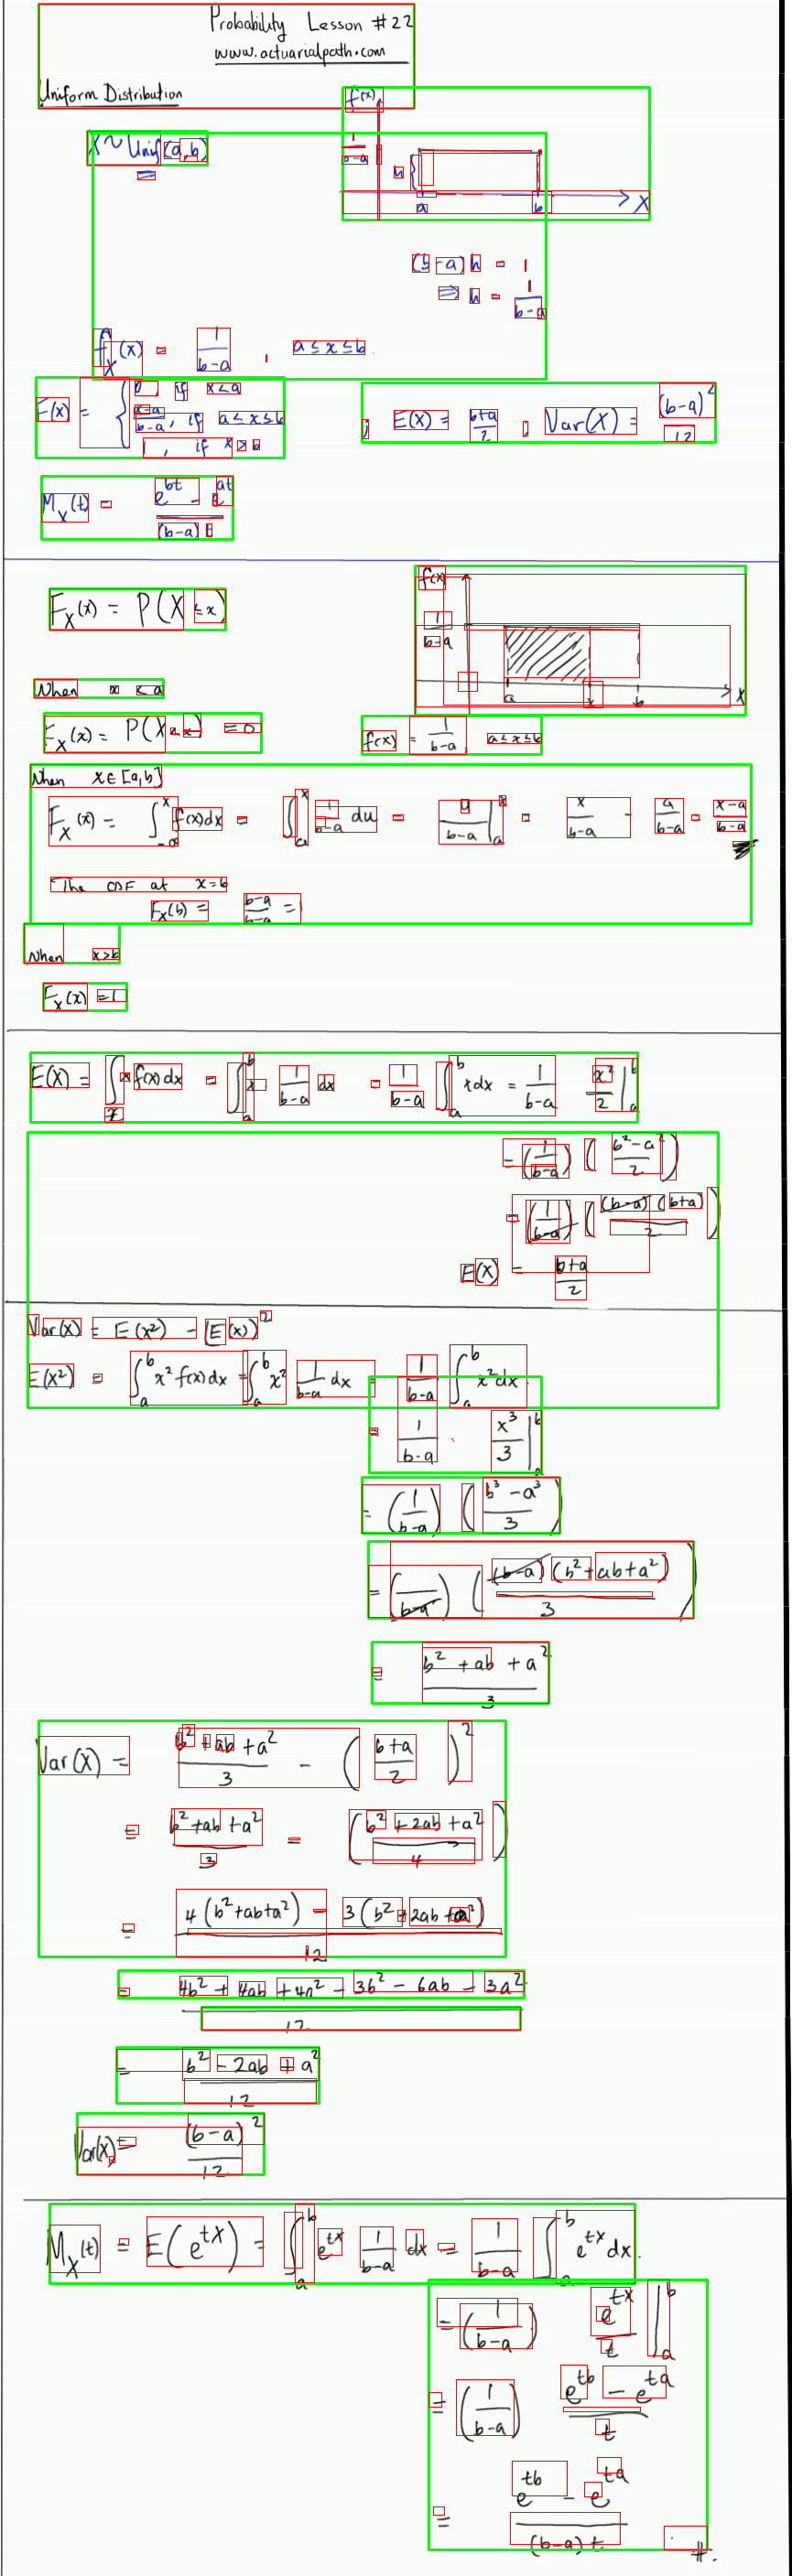 Probability Lesson #22
www.actuarialpath.com
Uniform Distribution
f(x)
X ~ Unif (a,b)
1/(b-a)
h
a b X
(b-a) h = 1
⇒ h = 1/(b-a)
f_X(x) = 1/(b-a) , a ≤ x ≤ b
F(x) = { 0, if x < a
(x-a)/(b-a), if a ≤ x ≤ b
1, if x > b
; E(X) = (b+a)/2 , Var(X) = (b-a)²/12
M_X(t) = (e^bt - e^at)/((b-a) t)
f(x)
F_X(x) = P(X ≤ x)
1/(b-a)
a x b X
When x < a
F_X(x) = P(X ≤ x) = 0
f(x) = 1/(b-a), a ≤ x ≤ b
When x ∈ [a,b]
F_X(x) = ∫_{-∞}^{x} f(x)dx = ∫_a^x 1/(b-a) du = u/(b-a) |_a^x = x/(b-a) - a/(b-a) = (x-a)/(b-a)
The CDF at x=b
F_X(b) = (b-a)/(b-a) = 1
When x>b
F_X(x) = 1
E(X) = ∫_x x f(x) dx = ∫_a^b x 1/(b-a) dx = 1/(b-a) ∫_a^b x dx = 1/(b-a) x²/2 |_a^b
= (1/(b-a)) ((b²-a²)/2)
= (1/(b-a)) ((b-a)(b+a)/2)
E(X) = (b+a)/2
Var(X) = E(X²) - [E(X)]²
E(X²) = ∫_a^b x² f(x) dx = ∫_a^b x² 1/(b-a) dx = 1/(b-a) ∫_a^b x² dx
= 1/(b-a) · x³/3 |_a^b
= (1/(b-a)) ((b³ - a³)/3)
= (1/(b-a)) ((b-a)(b²+ab+a²)/3)
= (b² + ab + a²)/3
Var(X) = (b² + ab + a²)/3 - ((b+a)/2)²
= (b²+ab+a²)/3 = ((b² + 2ab + a²)/4)
= (4(b²+ab+a²) - 3(b²+2ab+a²))/12
= (4b² + 4ab + 4a² - 3b² - 6ab - 3a²)/12
= (b² - 2ab + a²)/12
Var(X) = (b-a)²/12
M_X(t) = E(e^tX) = ∫_a^b e^tx 1/(b-a) dx = 1/(b-a) ∫_a^b e^tx dx.
= (1/(b-a)) e^tx/t |_a^b
= (1/(b-a)) (e^tb - e^ta)/t
= (e^tb - e^ta)/((b-a) t) . #.